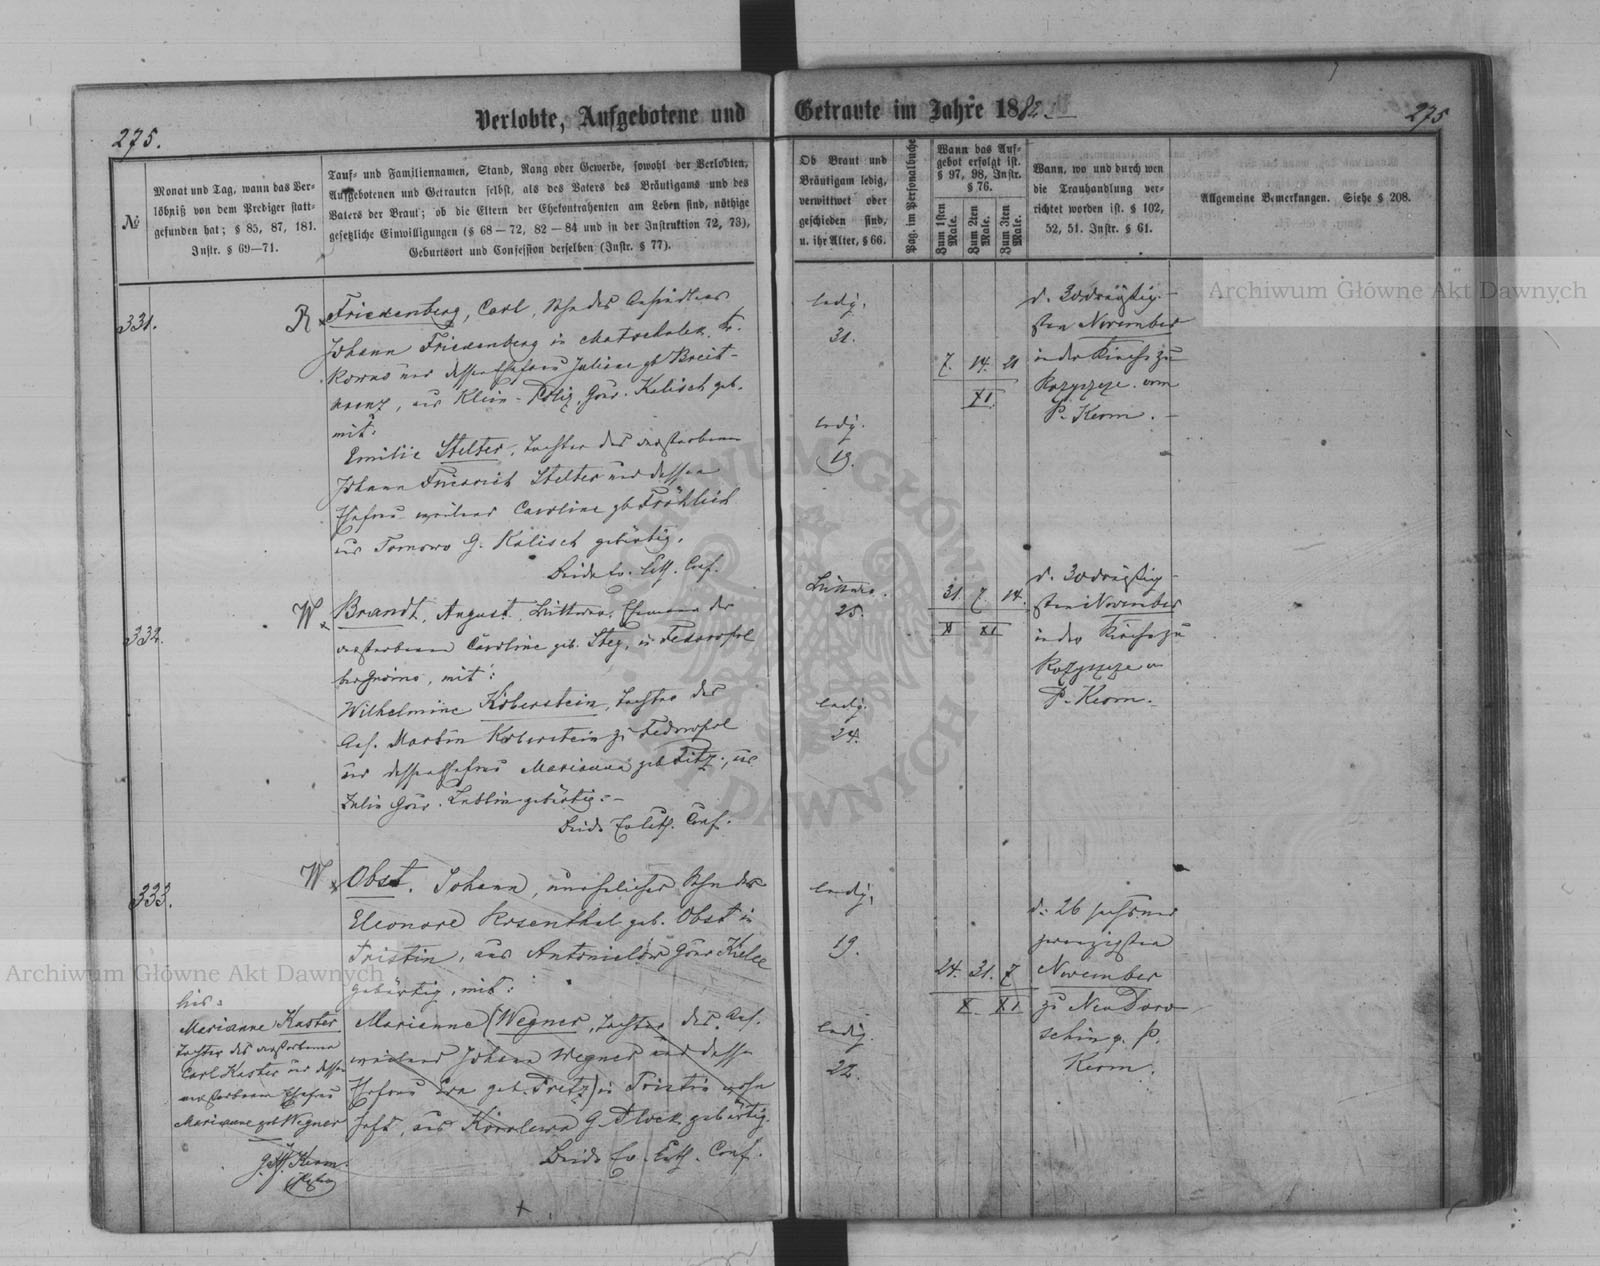 275.
Verlobte, Aufgebotene und
Getraute im Jahre 1882.
275
№
Monat und Tag, wann das Ver-
löbniß von dem Prediger statt-
gefunden hat; § 85, 87, 181.
Instr. § 69—71.
Tauf- und Familiennamen, Stand, Rang oder Gewerbe, sowohl der Verlobten,
Aufgebotenen und Getrauten selbst, als des Vaters des Bräutigams und des
Vaters der Braut; ob die Eltern der Ehekontrahenten am Leben sind, nöthige
gesetzliche Einwilligungen (§ 68 — 72, 82 — 84 und in der Instruktion 72, 73),
Geburtsort und Confession derselben (Instr. § 77).
Ob Braut und
Bräutigam ledig,
verwittwet oder
geschieden sind,
u. ihr Alter, § 66.
Pag. im Personalbuche
Wann das Auf-
gebot erfolgt ist.
§ 97, 98, Instr.
§ 76.
Zum 1sten Male.
Zum 2ten Male.
Zum 3ten Male.
Wann, wo und durch wen
die Trauhandlung ver-
richtet worden ist. § 102,
52, 51. Instr. § 61.
Allgemeine Bemerkungen. Siehe § 208.
331.
R
Friedenberg, Carl, Sohn des Ansiedlers
Johann Friedenberg in
und dessen Ehefrau Juliane geb Breit-
kreuz, aus Klein-, Gouv. Kalisch geb.
mit:
Emilie Stelter, Tochter des verstorbenen
Johann Friedrich Stelter und dessen
Ehefrau weiland Caroline gb Fröhlich
aus Tomowo G. Kalisch gebürtig.
Beide Ev. Luth. Conf.
ledig.
31.
ledig.
19.
7. 14. 21
XI.
d. 30 dreißig-
sten November
in der Kirche zu
Rozyszcze vom
P. Kerm.
332.
W
Brandt, August, Wittwer, Ehemann der
verstorbenen Caroline geb. Steg, in Fedorofpol
mit:
Wilhelmine Koberstein, Tochter des
Ans. Martin Koberstein zu Fedorofpol
und dessen Ehefrau Marianna geb Fitz, aus
Julin Gouv. Lublin gebürtig.
Beide Ev Luth. Conf.
Wittwer.
25.
ledig.
24.
31 7. 14.
X XI
d. 30 dreißig-
sten November
in der Kirche zu
Rozyszcze v
P. Kerm.
333.
W
Obst, Johann, unehelicher Sohn der
Eleonore Rosenthal geb. Obst in
Tristin, aus Antonielow Gouv Kielce
gebürtig, mit:
Marianne (Wegner, Tochter des Ans.
weiland Johann Wegner und dessen
Ehefrau Eva geb. Fretz) in Tristin wohn
haft, aus Karolewa G. Plock gebürtig.
Beide Ev. Luth. Conf.
hies:
Marianne Kaster
Tochter des verstorbenen
Carl Kaster und dessen
verstorbenen Ehefrau
Marianne geb Wegner
Kerm.
ledig.
19.
ledig.
22.
24. 31. 7
X. XI
d: 26 sechs und
zwanzigsten
November
zu Neu Doro-
schin p. P.
Kerm.
Archiwum Główne Akt Dawnych
Archiwum Główne Akt Dawnych
ARCHIWUM GŁÓWNE AKT DAWNYCH